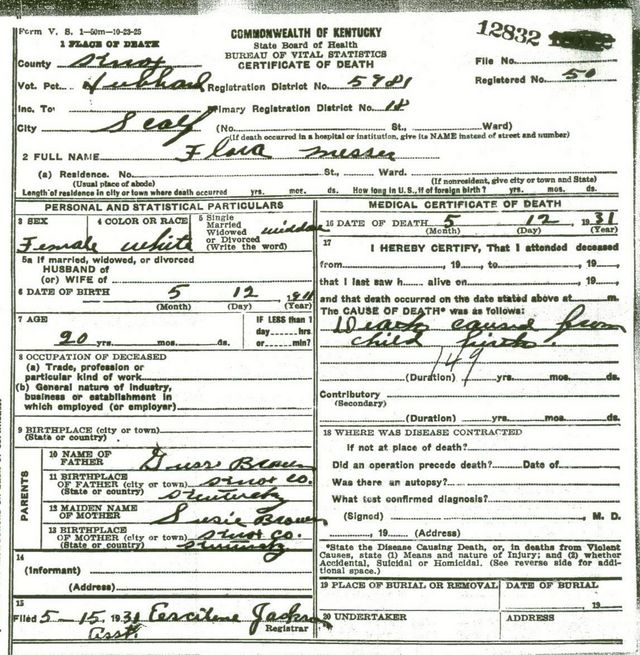 Form V. S. 1—50m—10-23-25
COMMONWEALTH OF KENTUCKY
State Board of Health
BUREAU OF VITAL STATISTICS
CERTIFICATE OF DEATH
12832
File No.
Registered No. 50
1 PLACE OF DEATH
County Knox
Vot. Pct. Hubbard Registration District No. 5981
Inc. To Primary Registration District No. 18
City Scalf (No. St., Ward)
(If death occurred in a hospital or institution, give its NAME instead of street and number)
2 FULL NAME Flora Messer
(a) Residence. No. St., Ward.
(Usual place of abode) (If nonresident, give city or town and State)
Length of residence in city or town where death occurred yrs. mos. ds. How long in U.S., if of foreign birth? yrs. mos. ds.
PERSONAL AND STATISTICAL PARTICULARS
3 SEX 4 COLOR OR RACE 5 Single
Married
Widowed
or Divorced
(Write the word)
Female white
5a If married, widowed, or divorced
HUSBAND of
(or) WIFE of
6 DATE OF BIRTH 5 12 1911
(Month) (Day) (Year)
7 AGE IF LESS than 1
20 yrs. mos. ds. day hrs
or min?
8 OCCUPATION OF DECEASED
(a) Trade, profession or
particular kind of work
(b) General nature of industry,
business or establishment in
which employed (or employer)
9 BIRTHPLACE (city or town)
(State or country)
PARENTS
10 NAME OF
FATHER Brown
11 BIRTHPLACE
OF FATHER (city or town) Knox Co.
(State or country) Kentucky
12 MAIDEN NAME
OF MOTHER Susie Brown
13 BIRTHPLACE
OF MOTHER (city or town) Knox Co.
(State or country) Kentucky
14
(Informant)
(Address)
15
Filed 5-15, 1931 Jackson
Asst. Registrar
MEDICAL CERTIFICATE OF DEATH
16 DATE OF DEATH 5 12 1931
(Month) (Day) (Year)
17
I HEREBY CERTIFY, That I attended deceased
from , 19 to , 19 ,
that I last saw h alive on , 19 ,
and that death occurred on the date stated above at m.
The CAUSE OF DEATH* was as follows:
Death caused from
child birth
149
(Duration) yrs. mos. ds.
Contributory
(Secondary)
(Duration) yrs. mos. ds.
18 WHERE WAS DISEASE CONTRACTED
if not at place of death?
Did an operation precede death? Date of
Was there an autopsy?
What test confirmed diagnosis?
(Signed) M. D.
, 19 (Address)
*State the Disease Causing Death, or, in deaths from Violent
Causes, state (1) Means and nature of Injury; and (2) whether
Accidental, Suicidal or Homicidal. (See reverse side for addi-
tional space.)
19 PLACE OF BURIAL OR REMOVAL DATE OF BURIAL
, 19
20 UNDERTAKER ADDRESS